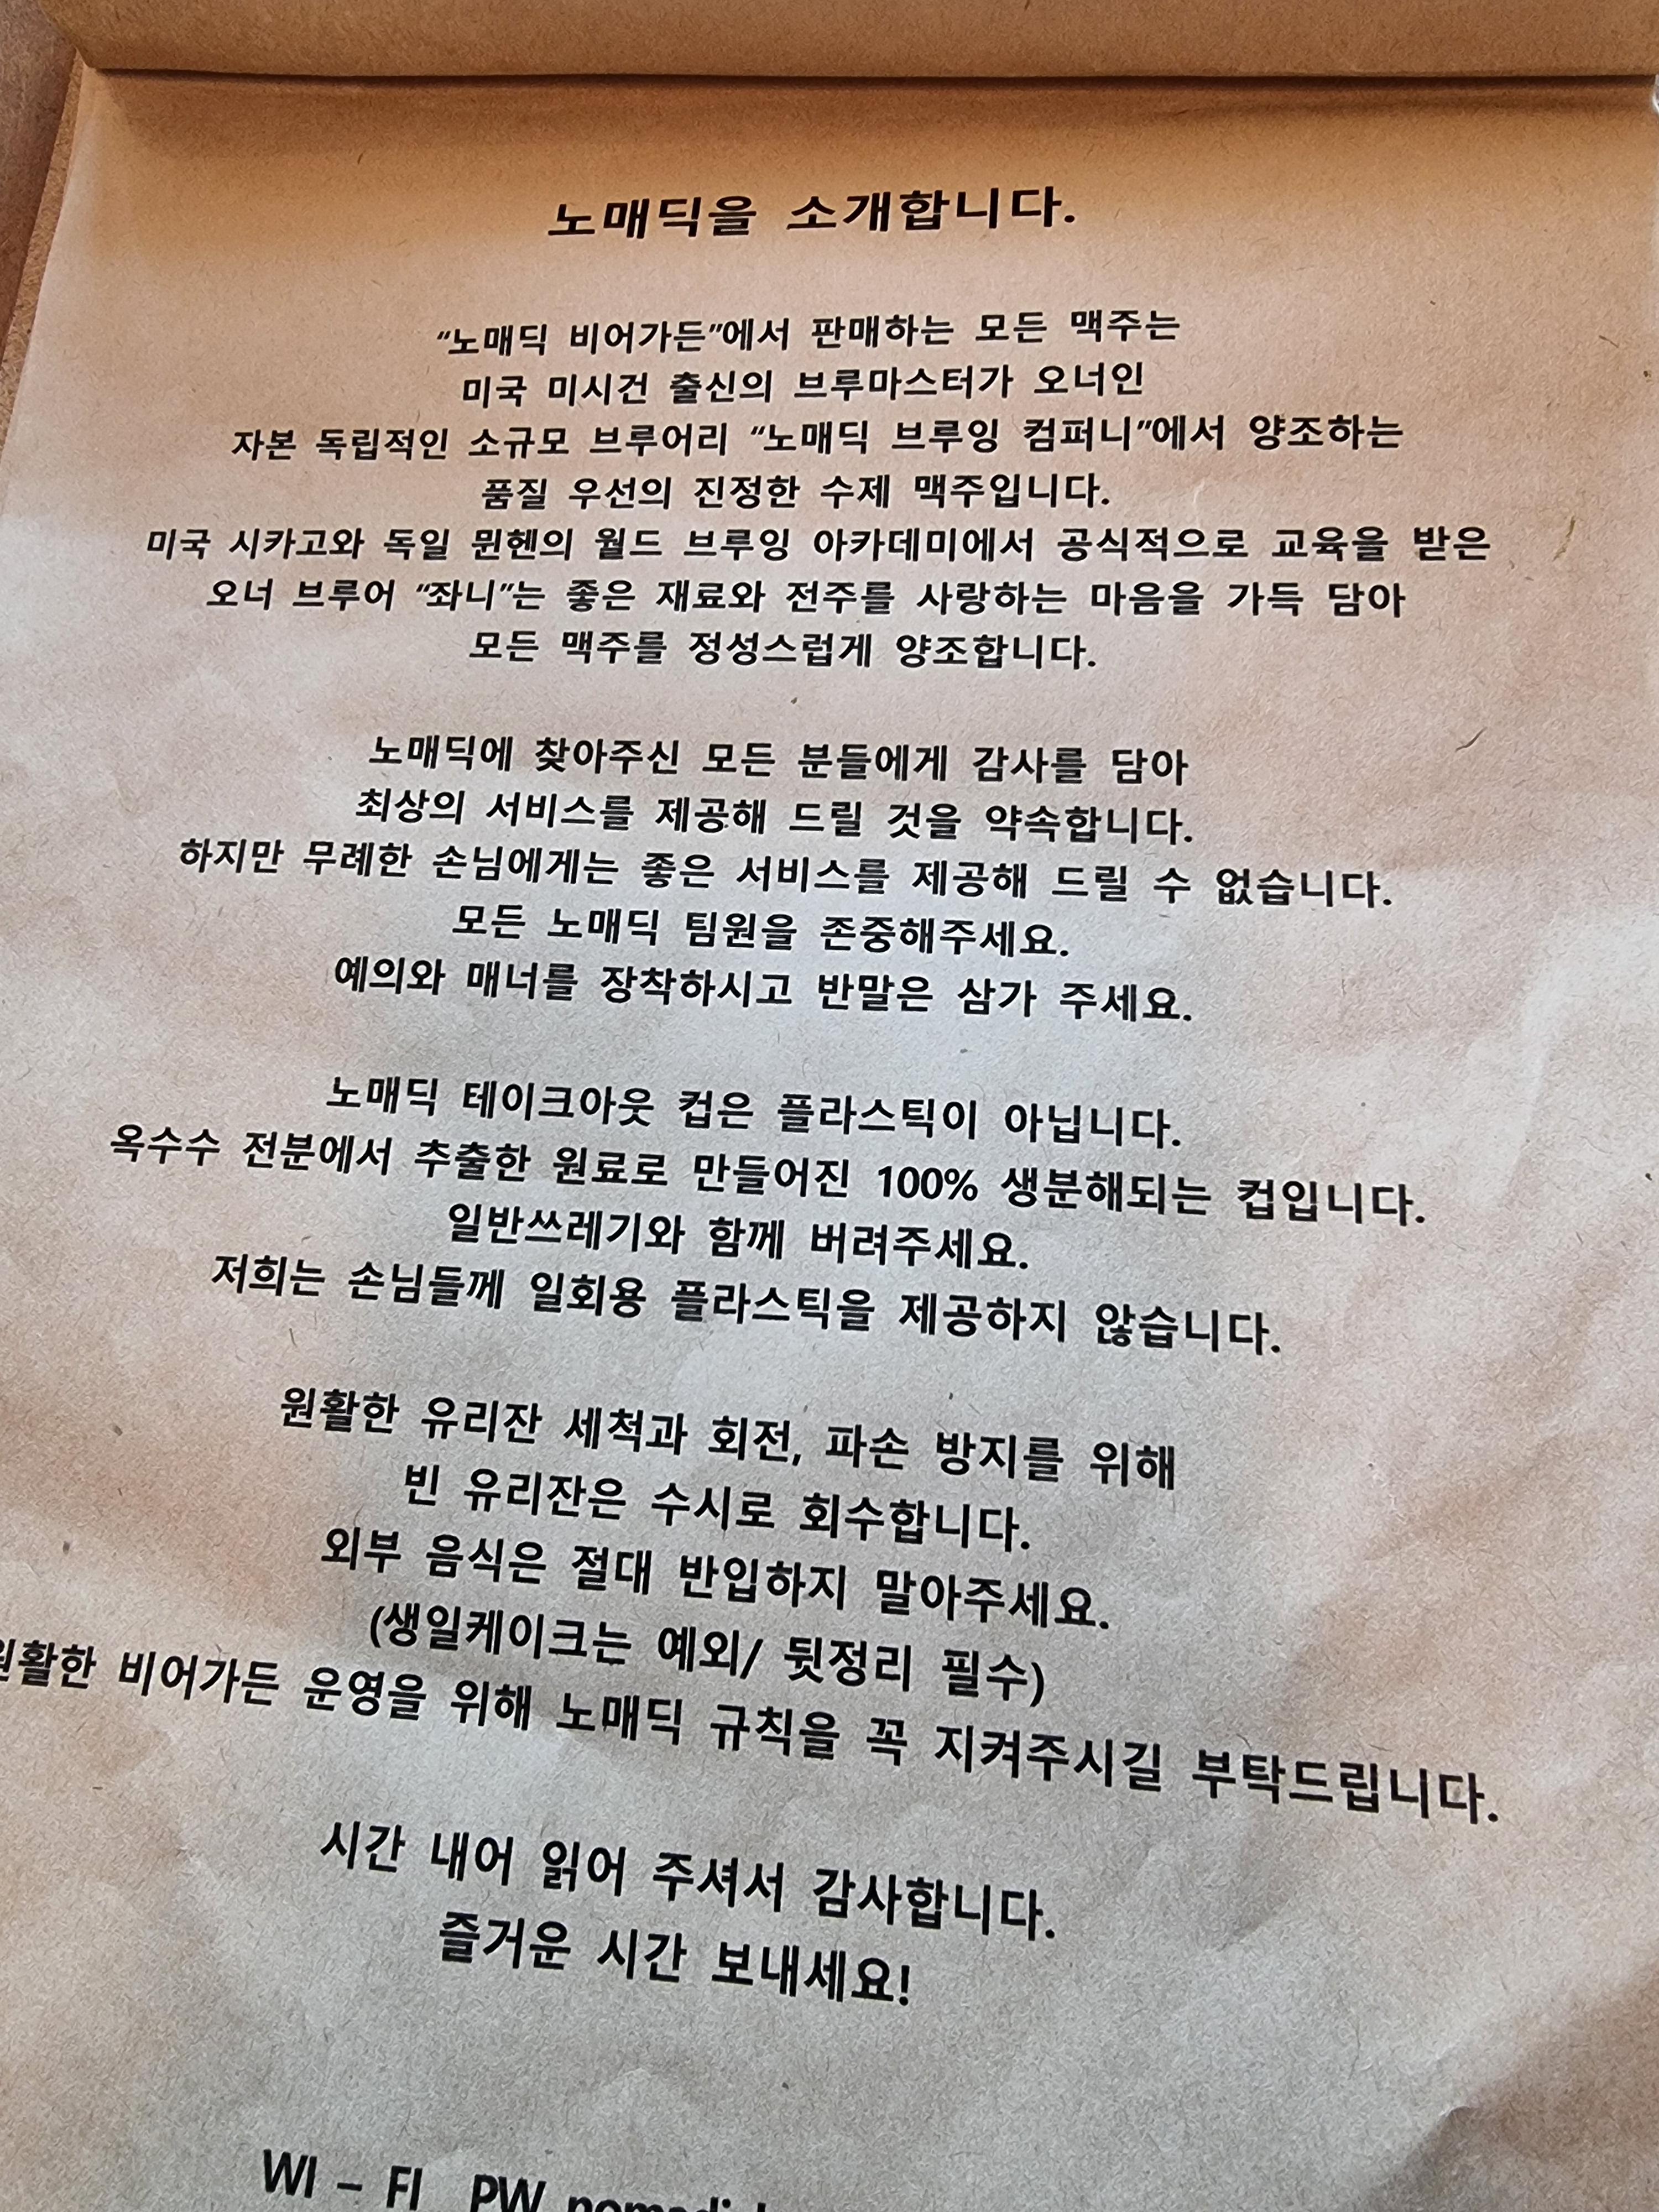 노매딕을 소개합니다.
“노매딕 비어가든”에서 판매하는 모든 맥주는
미국 미시건 출신의 브루마스터가 오너인
자본 독립적인 소규모 브루어리 “노매딕 브루잉 컴퍼니”에서 양조하는
품질 우선의 진정한 수제 맥주입니다.
미국 시카고와 독일 뮌헨의 월드 브루잉 아카데미에서 공식적으로 교육을 받은
오너 브루어 “좌니”는 좋은 재료와 전주를 사랑하는 마음을 가득 담아
모든 맥주를 정성스럽게 양조합니다.
노매딕에 찾아주신 모든 분들에게 감사를 담아
최상의 서비스를 제공해 드릴 것을 약속합니다.
하지만 무례한 손님에게는 좋은 서비스를 제공해 드릴 수 없습니다.
모든 노매딕 팀원을 존중해주세요.
예의와 매너를 장착하시고 반말은 삼가 주세요.
노매딕 테이크아웃 컵은 플라스틱이 아닙니다.
옥수수 전분에서 추출한 원료로 만들어진 100% 생분해되는 컵입니다.
일반쓰레기와 함께 버려주세요.
저희는 손님들께 일회용 플라스틱을 제공하지 않습니다.
원활한 유리잔 세척과 회전, 파손 방지를 위해
빈 유리잔은 수시로 회수합니다.
외부 음식은 절대 반입하지 말아주세요.
(생일케이크는 예외/ 뒷정리 필수)
원활한 비어가든 운영을 위해 노매딕 규칙을 꼭 지켜주시길 부탁드립니다.
시간 내어 읽어 주셔서 감사합니다.
즐거운 시간 보내세요!
WI – FI PW